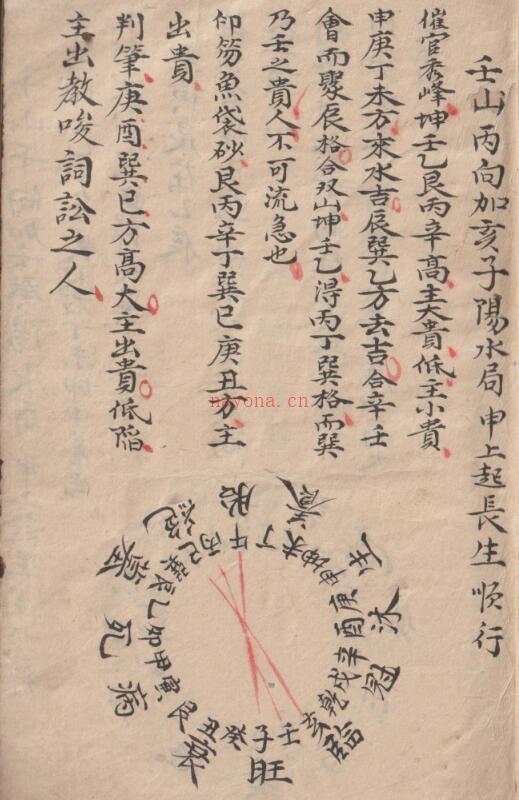 壬山丙向加亥子陽水局申上起長生順行
催官秀峰坤壬乙艮丙辛高主大貴低主小貴
申庚丁未方來水吉辰巽乙方去吉合辛壬
會而聚辰格合双山坤壬乙淂丙丁巽格而巽
乃壬之貴人不可流急也
印笏魚袋砂艮丙辛丁巽巳庚丑方主
出貴
判筆庚酉巽巳方高大主出貴低陷
主出教唆詞訟之人
胎養生沐冠臨旺衰病死墓绝
午丁未坤申庚酉辛戌乾亥壬子癸丑艮寅甲卯乙辰巽巳丙
nayona.cn